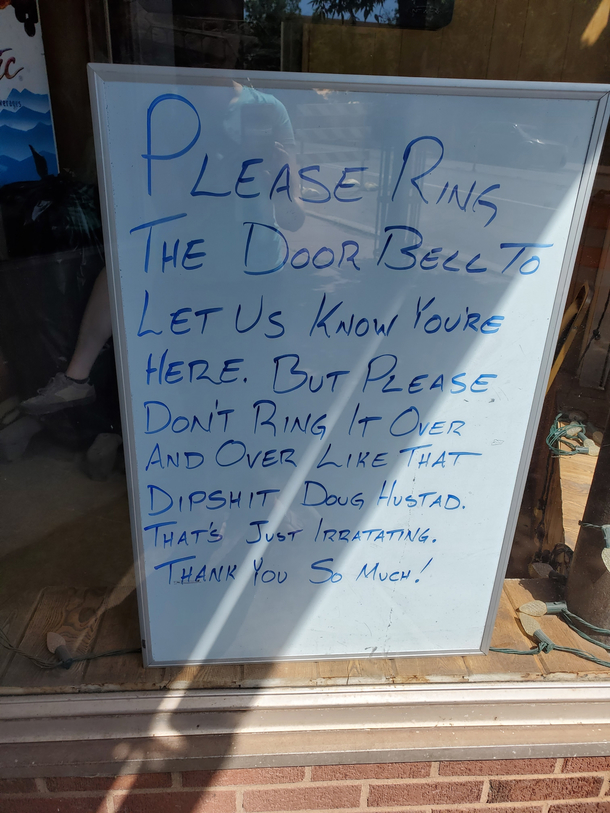 PLEASE RING
THE DOOR BELL TO
LET US KNOW YOU'RE
HERE. BUT PLEASE
DON'T RING IT OVER
AND OVER LIKE THAT
DIPSHIT DOUG HUSTAD.
THAT'S JUST IRRATATING.
THANK YOU SO MUCH!